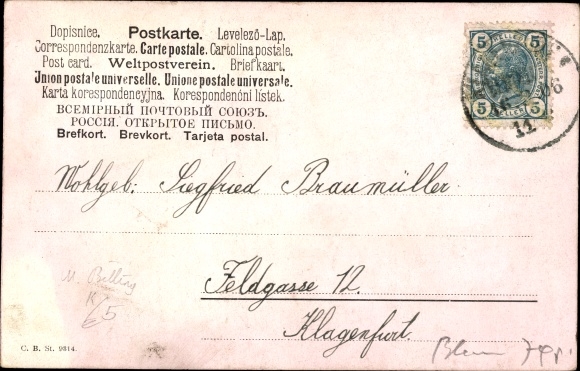 Dopisnice. Postkarte. Levelező-Lap.
Correspondenzkarte. Carte postale. Cartolina postale.
Post card. Weltpostverein. Briefkaart.
Union postale universelle. Unione postale universale.
Karta korespondencyjna. Korespondenční lístek.
ВСЕМІРНЫЙ ПОЧТОВЫЙ СОЮЗЪ.
РОССІЯ. ОТКРЫТОЕ ПИСЬМО.
Brefkort. Brevkort. Tarjeta postal.
5 HELLER 5
5 HELLER 5
11
Wohlgeb: Siegfried Braumüller.
Feldgasse 12.
Klagenfurt.
M. Billing
K
65
C. B. St. 9814.